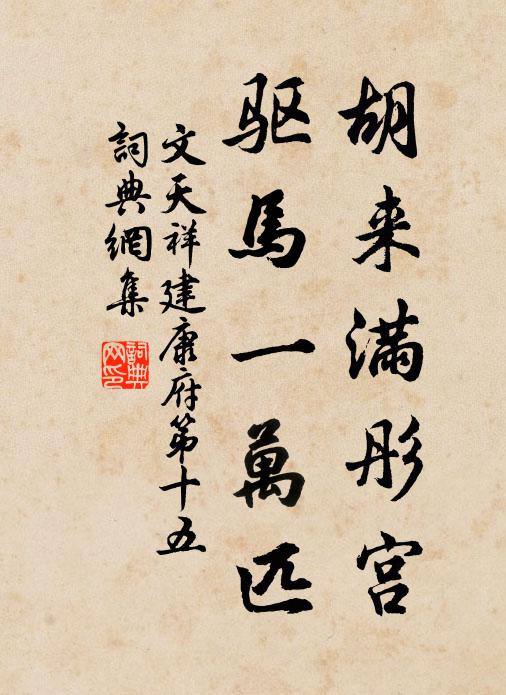 胡来满彤宫
驱馬一萬匹
文天祥建康府第十五
詞典網集
詞典网印